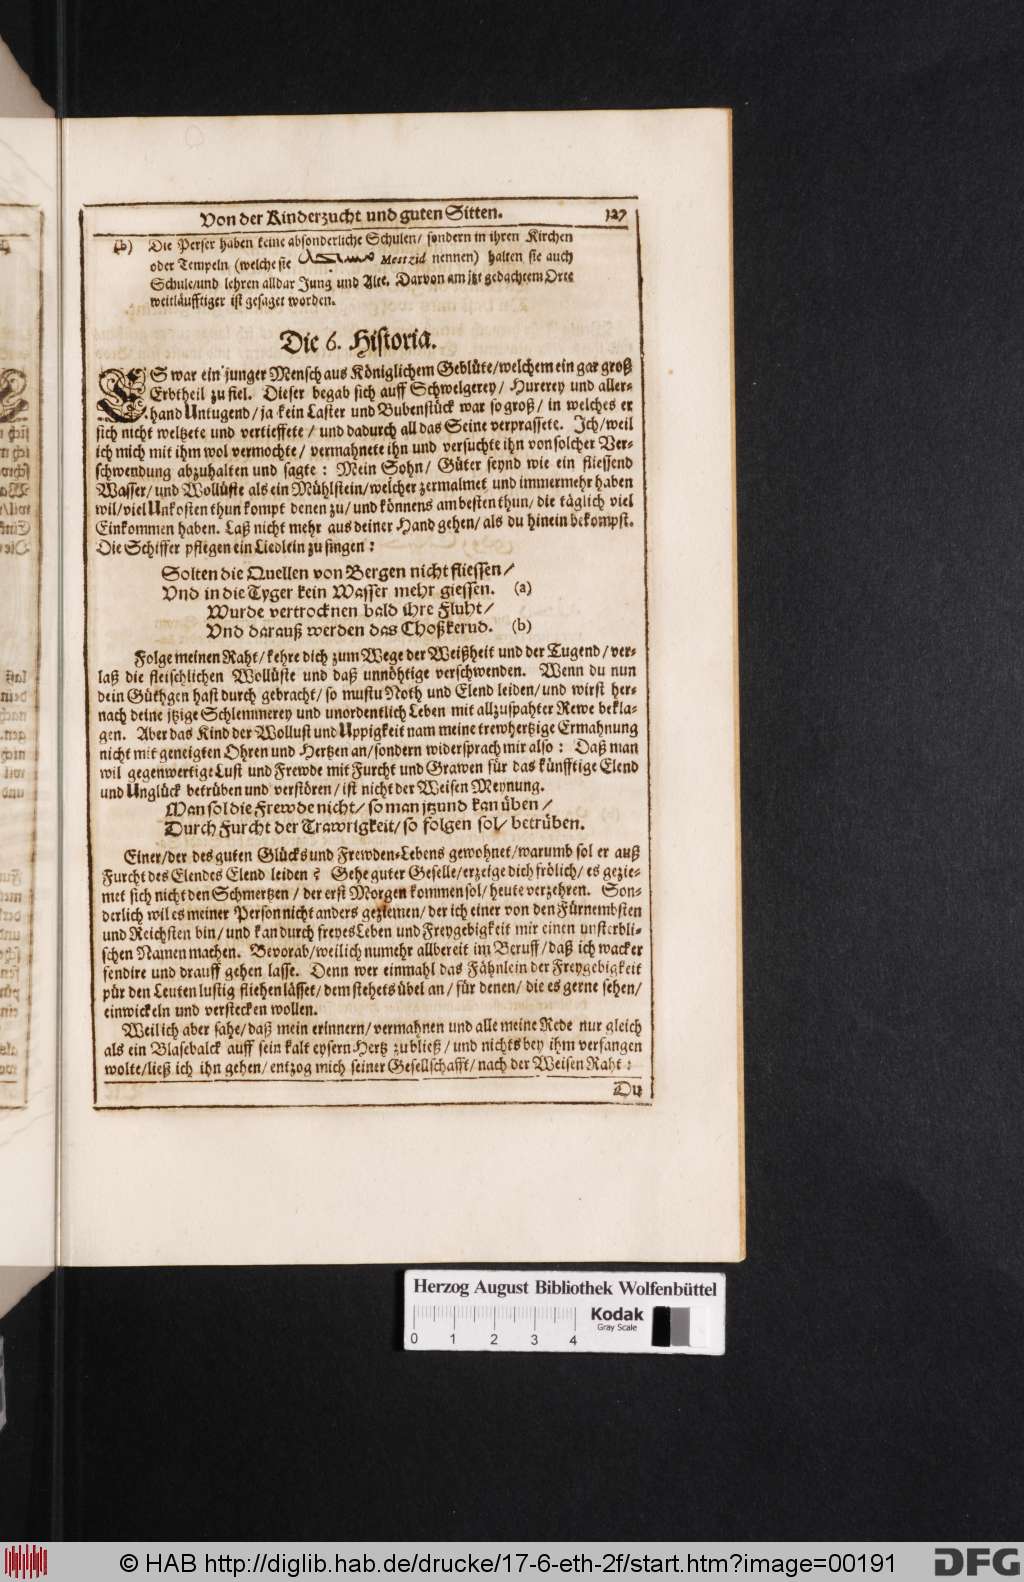 Von der Kinderzucht und guten Sitten. 127
(b) Die Perser haben keine absonderliche Schulen/ sondern in ihren Kirchen
oder Tempeln (welche sie Mestzid nennen) halten sie auch
Schule/und lehren alldar Jung und Alte. Darvon am jtzt gedachtem Orte
weitläufftiger ist gesaget worden.
Die 6. Historia.
ES war ein junger Mensch aus Königlichem Geblüte/welchem ein gar groß
Erbtheil zu fiel. Dieser begab sich auff Schwelgerey/ Hurerey und aller-
hand Untugend/ ja kein Laster und Bubenstück war so groß/ in welches er
sich nicht weltzete und vertieffete/ und dadurch all das Seine verprassete. Ich/weil
ich mich mit ihm wol vermochte/ vermahnete ihn und versuchte ihn von solcher Ver-
schwendung abzuhalten und sagte: Mein Sohn/ Güter seynd wie ein fliessend
Wasser/ und Wollüste als ein Mühlstein/welcher zermalmet und immermehr haben
wil/viel Unkosten thun kompt denen zu/ und könnens am besten thun/ die täglich viel
Einkommen haben. Laß nicht mehr aus deiner Hand gehen/ als du hinein bekompst.
Die Schiffer pflegen ein Liedlein zu singen:
Solten die Quellen von Bergen nicht fliessen/
Vnd in die Tyger kein Wasser mehr giessen. (a)
Wurde vertrocknen bald ihre Fluht/
Vnd darauß werden das Choßkerud. (b)
Folge meinen Raht/ kehre dich zum Wege der Weißheit und der Tugend/ ver-
laß die fleischlichen Wollüste und daß unnöhtige verschwenden. Wenn du nun
dein Güthgen hast durch gebracht/ so mustu Noth und Elend leiden/ und wirst her-
nach deine jtzige Schlemmerey und unordentlich Leben mit allzuspahter Rewe bekla-
gen. Aber das Kind der Wollust und Uppigkeit nam meine trewhertzige Ermahnung
nicht mit geneigten Ohren und Hertzen an/sondern widersprach mir also: Daß man
wil gegenwertige Lust und Frewde mit Furcht und Grawen für das künfftige Elend
und Unglück betrüben und verstören/ ist nicht der Weisen Meynung.
Man sol die Frewde nicht/ so man jtzund kan üben/
Durch Furcht der Trawrigkeit/ so folgen sol/ betrüben.
Einer/der des guten Glücks und Frewden-Lebens gewohnet/warumb sol er auß
Furcht des Elendes Elend leiden? Gehe guter Geselle/erzeige dich frölich/ es gezie-
met sich nicht den Schmertzen/ der erst Morgen kommen sol/ heute verzehren. Son-
derlich wil es meiner Person nicht anders geziemen/ der ich einer von den Fürnembsten
und Reichsten bin/ und kan durch freyes Leben und Freygebigkeit mir einen unsterbli-
schen Namen machen. Bevorab/weil ich numehr allbereit im Beruff/ daß ich wacker
sendire und drauff gehen lasse. Denn wer einmahl das Fähnlein der Freygebigkeit
pür den Leuten lustig fliehen lässet/ dem stehets übel an/ für denen/ die es gerne sehen/
einwickeln und verstecken wollen.
Weil ich aber sahe/ daß mein erinnern/ vermahnen und alle meine Rede nur gleich
als ein Blasebalck auff sein kalt eysern Hertz zubließ/ und nichts bey ihm verfangen
wolte/ließ ich ihn gehen/ entzog mich seiner Gesellschafft/ nach der Weisen Raht:
Du
Herzog August Bibliothek Wolfenbüttel
Kodak
Gray Scale
0 1 2 3 4
© HAB http://diglib.hab.de/drucke/17-6-eth-2f/start.htm?image=00191
DFG